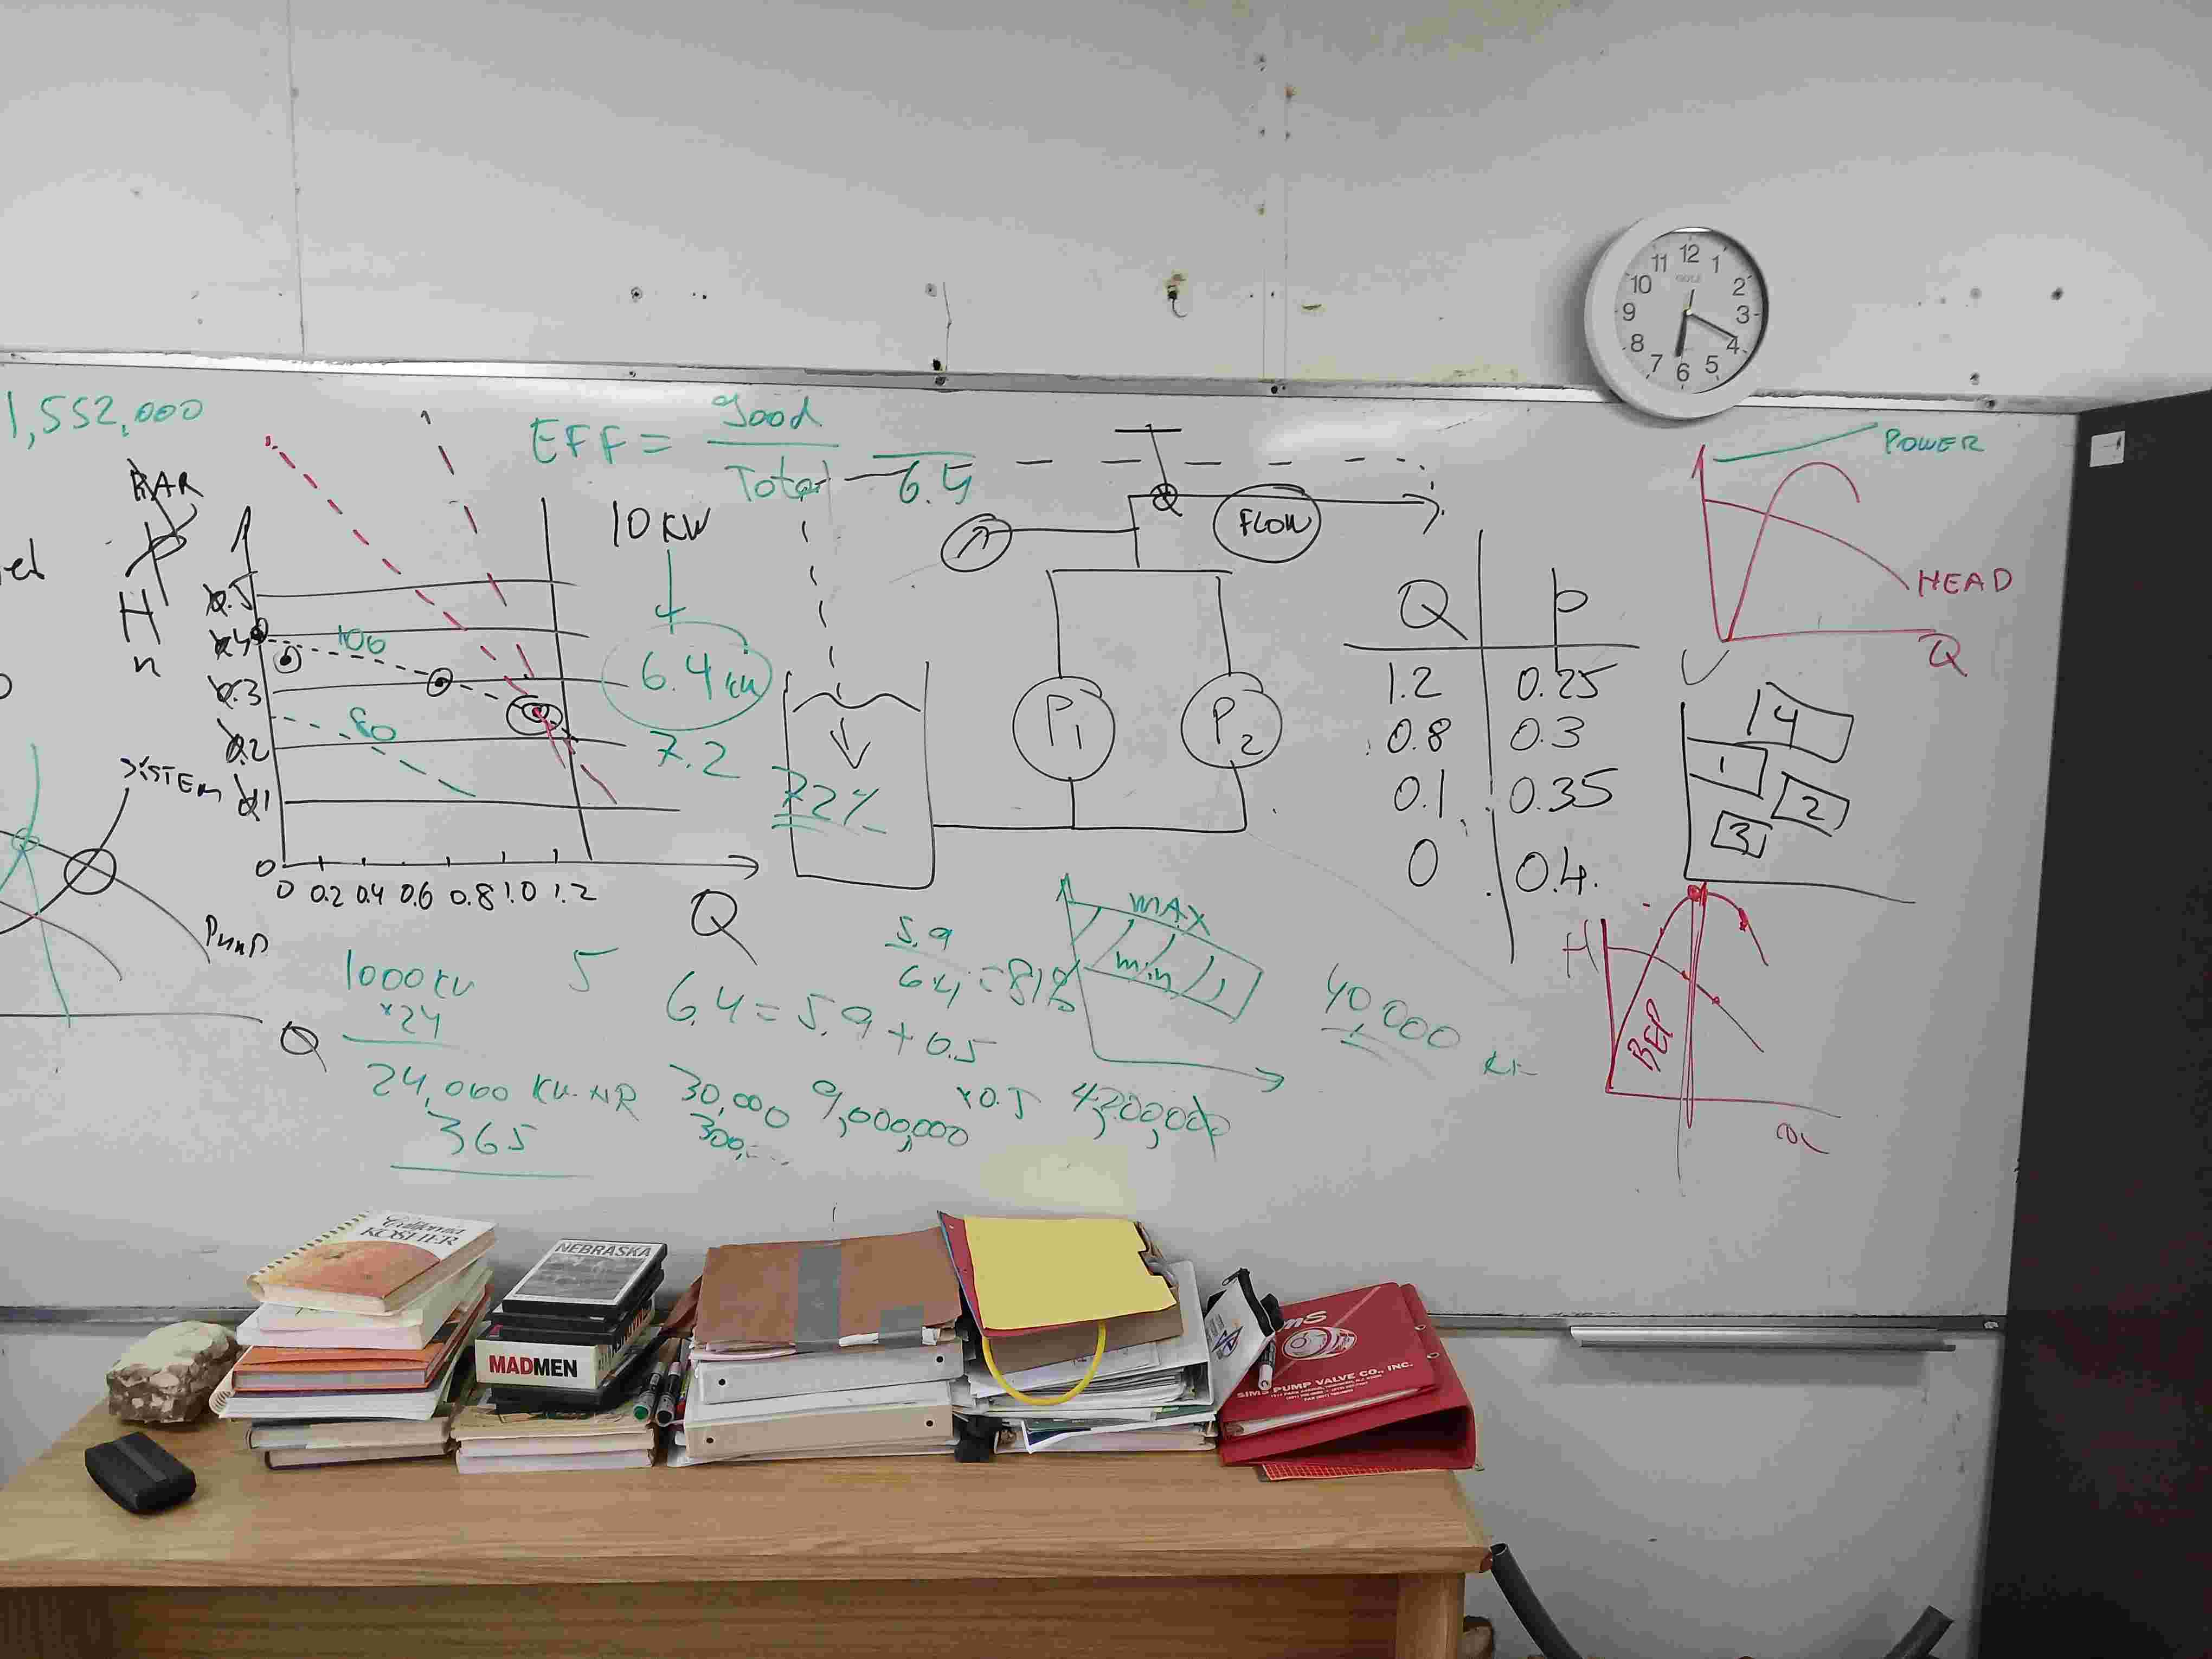 1,552,000
BAR
H
0.5
0.4
0.3
0.2
0.1
0
100
80
0 0.2 0.4 0.6 0.8 1.0 1.2
Q
SYSTEM
PUMP
Q
EFF = good
Total
6.4
10 KW
6.4 kw
7.2
72%
FLOW
P1
P2
Q p
1.2 0.25
0.8 0.3
0.1 0.35
0 0.4
POWER
HEAD
Q
4
1
2
3
H
BEP
Q
MAX
min
1000 kw
×24
24,000 KW·HR
365
5
5.9
6.4 = 81%
6.4 = 5.9 + 0.5
30,000
300,
9,000,000
×0.5
4,200,000
40,000
12
1
2
3
4
5
6
7
8
9
10
11
California
KOSHER
NEBRASKA
MADMEN
SIMS
SIMS PUMP VALVE CO., INC.